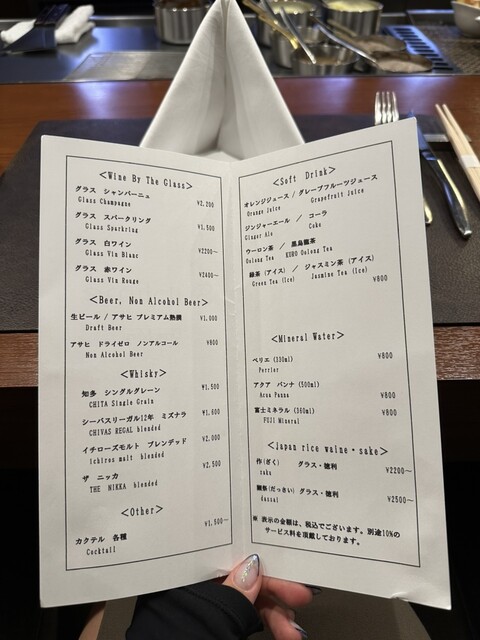 <Wine By The Glass>
グラス シャンパーニュ
Glass Champagne ¥2,200
グラス スパークリング
Glass Sparkring ¥1,500
グラス 白ワイン
Glass Vin Blanc ¥2200～
グラス 赤ワイン
Glass Vin Rouge ¥2400～
<Beer, Non Alcohol Beer>
生ビール / アサヒ プレミアム熟撰 ¥1,000
Draft Beer
アサヒ ドライゼロ ノンアルコール ¥800
Non Alcohol Beer
<Whisky>
知多 シングルグレーン ¥1,500
CHITA Single Grain
シーバスリーガル12年 ミズナラ ¥1,600
CHIVAS REGAL blended
イチローズモルト ブレンデッド ¥2,000
ichiros malt blended
ザ ニッカ ¥2,500
THE NIKKA blended
<Other>
カクテル 各種 ¥1,500～
Cocktail
<Soft Drink>
オレンジジュース / グレープフルーツジュース
Orange juice Grapefruit Juice
ジンジャーエール / コーラ
Ginger Ale Coke
ウーロン茶 / 黒烏龍茶
Oolong Tea KURO Oolong Tea
緑茶 (アイス) / ジャスミン茶 (アイス)
Green Tea (Ice) Jasmine Tea (Ice)
¥800
<Mineral Water>
ペリエ (330ml) ¥800
Perrier
アクア パンナ (500ml)
Acua Panna ¥800
富士ミネラル (360ml) ¥800
FUJI Mineral
<Japan rice waine・sake>
作(ざく) グラス・徳利 ¥2200～
zaku
獺祭(だっさい) グラス・徳利
dassai ¥2500～
※ 表示の金額は、税込でございます。別途10%の
サービス料を頂戴しております。